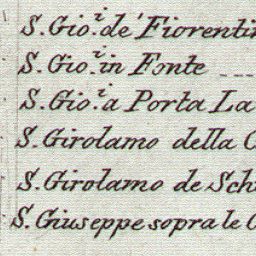 S. Gio.i de' Fiorentin
S. Gio.i in Fonte
S. Gio.i a Porta La
S. Girolamo della C
S. Girolamo de Sch
S. Giuseppe sopra le C